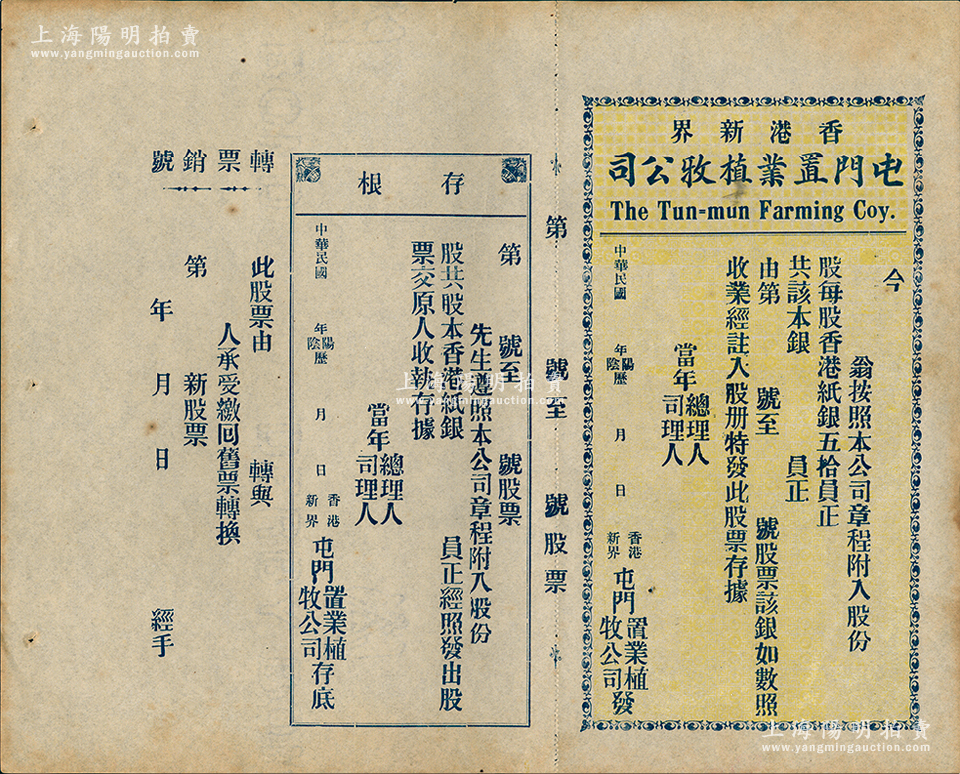 上海陽明拍賣
www.yangmingauction.com
香港新界
屯門置業植牧公司
The Tun=mun Farming Coy.
今
翁按照本公司章程附入股份
股每股香港紙銀五拾員正
共該本銀 員正
由第 號至 號股票該銀如數照
收業經註入股册特發此股票存據
當年總理人
司理人
中華民國 年陽歷陰 月 日 香港新界屯門置業植牧公司發
第 號至 號股票
存根
第 號至 號股票
先生遵照本公司章程附入股份
股共股本香港紙銀 員正經照發出股
票交原人收執存據
當年總理人
司理人
中華民國 年陽歷陰 月 日 香港新界屯門置業植牧公司存底
轉票銷號
此股票由 轉與
人承受繳回舊票轉換
第 新股票
年 月 日 經手
上海陽明拍賣
www.yangmingauction.com
上海陽明拍賣
www.yangmingauction.com